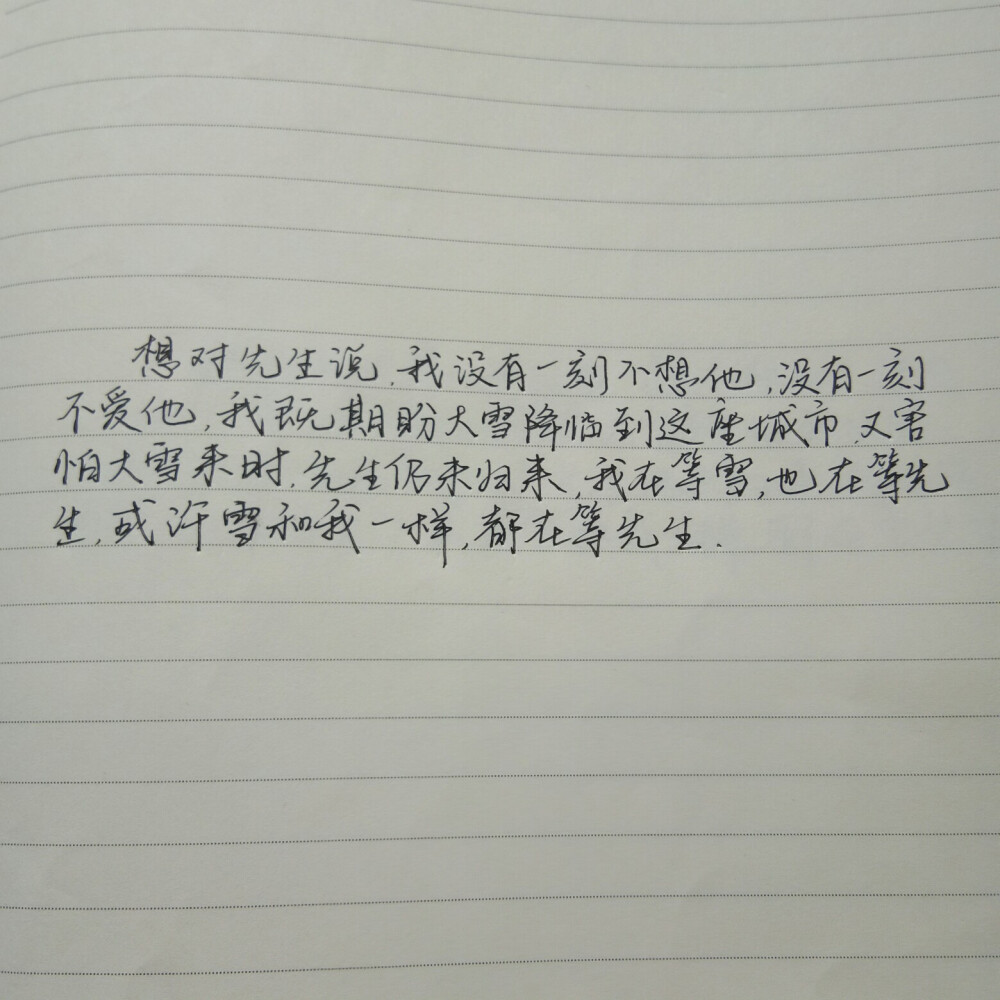 想对先生说,我没有一刻不想他,没有一刻
不爱他,我既期盼大雪降临到这座城市,又害
怕大雪来时,先生仍未归来,我在等雪,也在等先
生,或许雪和我一样,都在等先生.